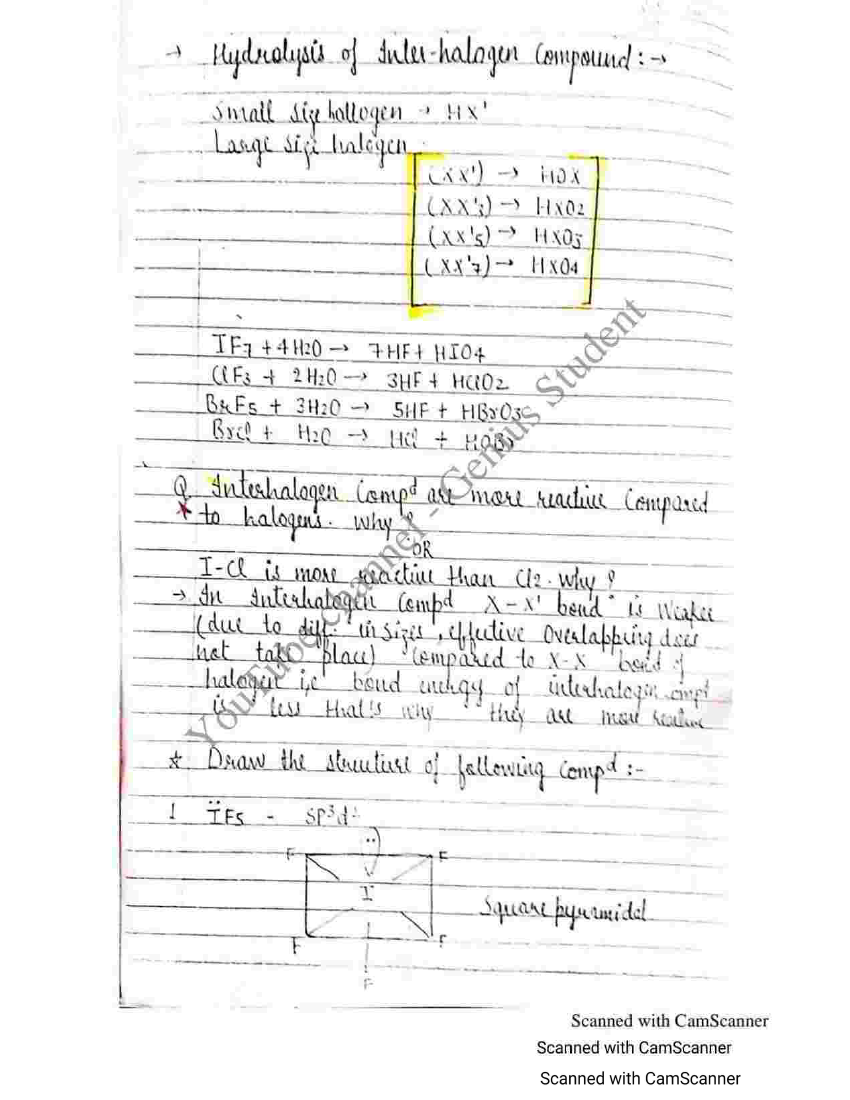 → Hydrolysis of Inter-halogen Compound :→
Small size hallogen → HX'
Large size halogen
(XX') → HOX
(XX'3) → HXO2
(XX'5) → HXO3
(XX'7) → HXO4
IF7 + 4H2O → 7HF + HIO4
ClF3 + 2H2O → 3HF + HClO2
BrF5 + 3H2O → 5HF + HBrO3
BrCl + H2O → HCl + HOBr
Q Interhalogen Compd are more reactive Compared
* to halogens. Why?
OR
I-Cl is more reactive than Cl2. Why?
→ In Interhalogen Compd X-X' bond is weaker
(due to diff. in sizes, effective Overlapping does
not take place) compared to X-X bond of
halogen i,e bond energy of interhalogen cmpd
is less that's why they are more reactive
* Draw the structure of following Compd :-
1 ÏF5 - SP3d2
F F
I
Square pyramidal
F F
F
YouTube Channel - Genius Student
Scanned with CamScanner
Scanned with CamScanner
Scanned with CamScanner